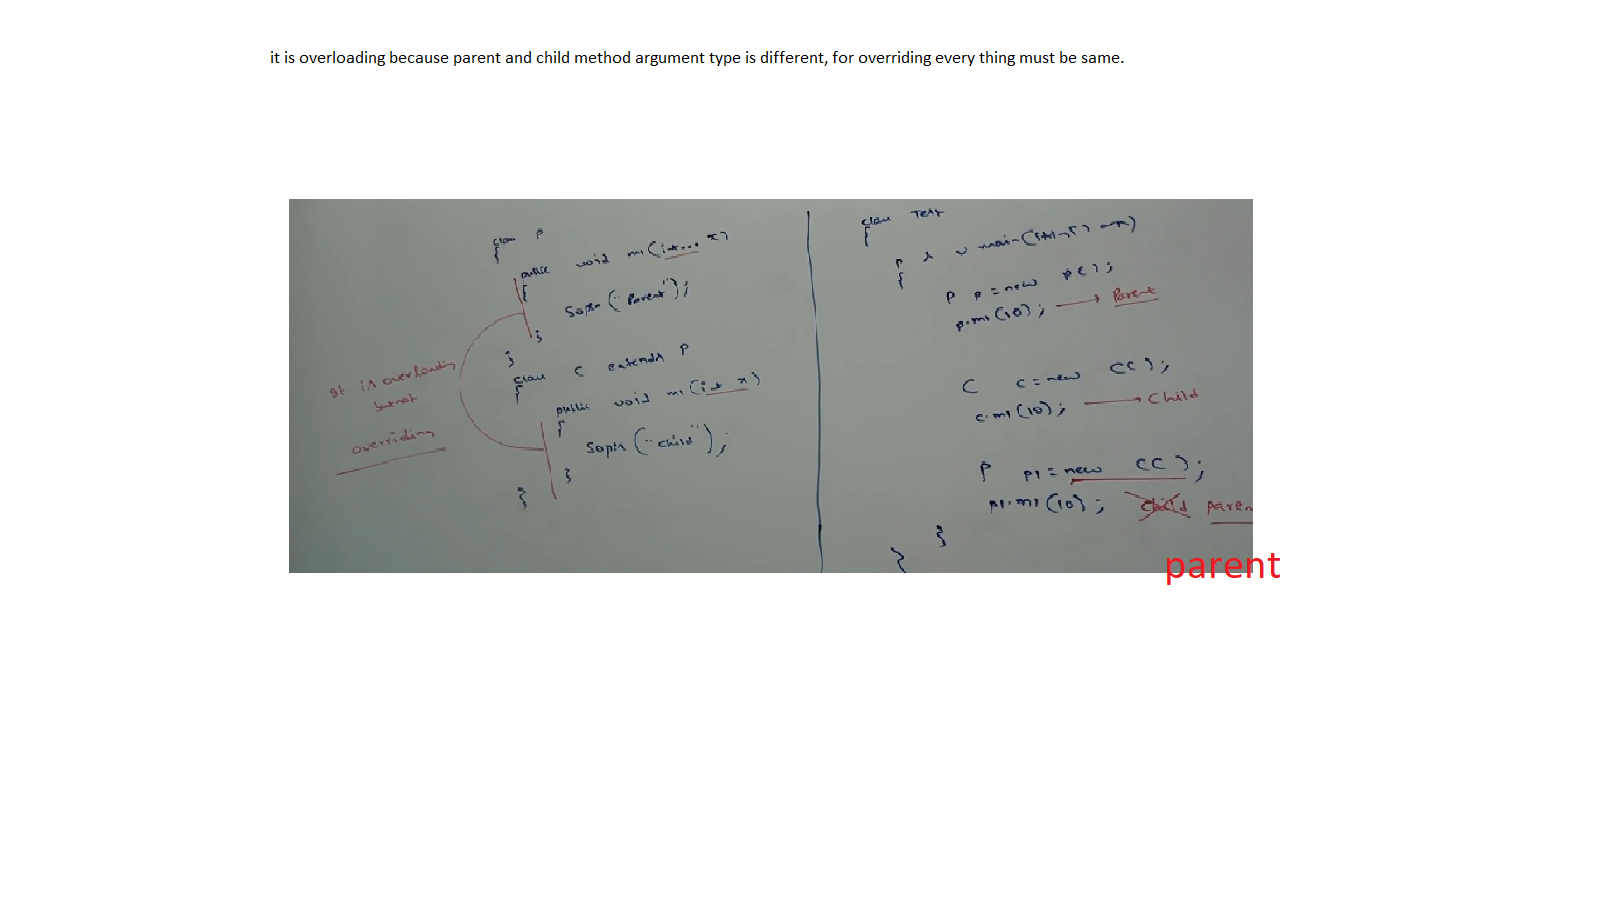 it is overloading because parent and child method argument type is different, for overriding every thing must be same.
class P
{
public void m1(int... x)
{
Sopln("Parent");
}
}
class C extends P
{
public void m1(int x)
{
Sopln("child");
}
}
It is overloading
but not
overriding
class Test
{
p s v main(String[] args)
{
P p = new P();
p.m1(10); → Parent
C c = new C();
c.m1(10); → Child
P p1 = new C();
p1.m1(10); Child Paren
}
}
parent